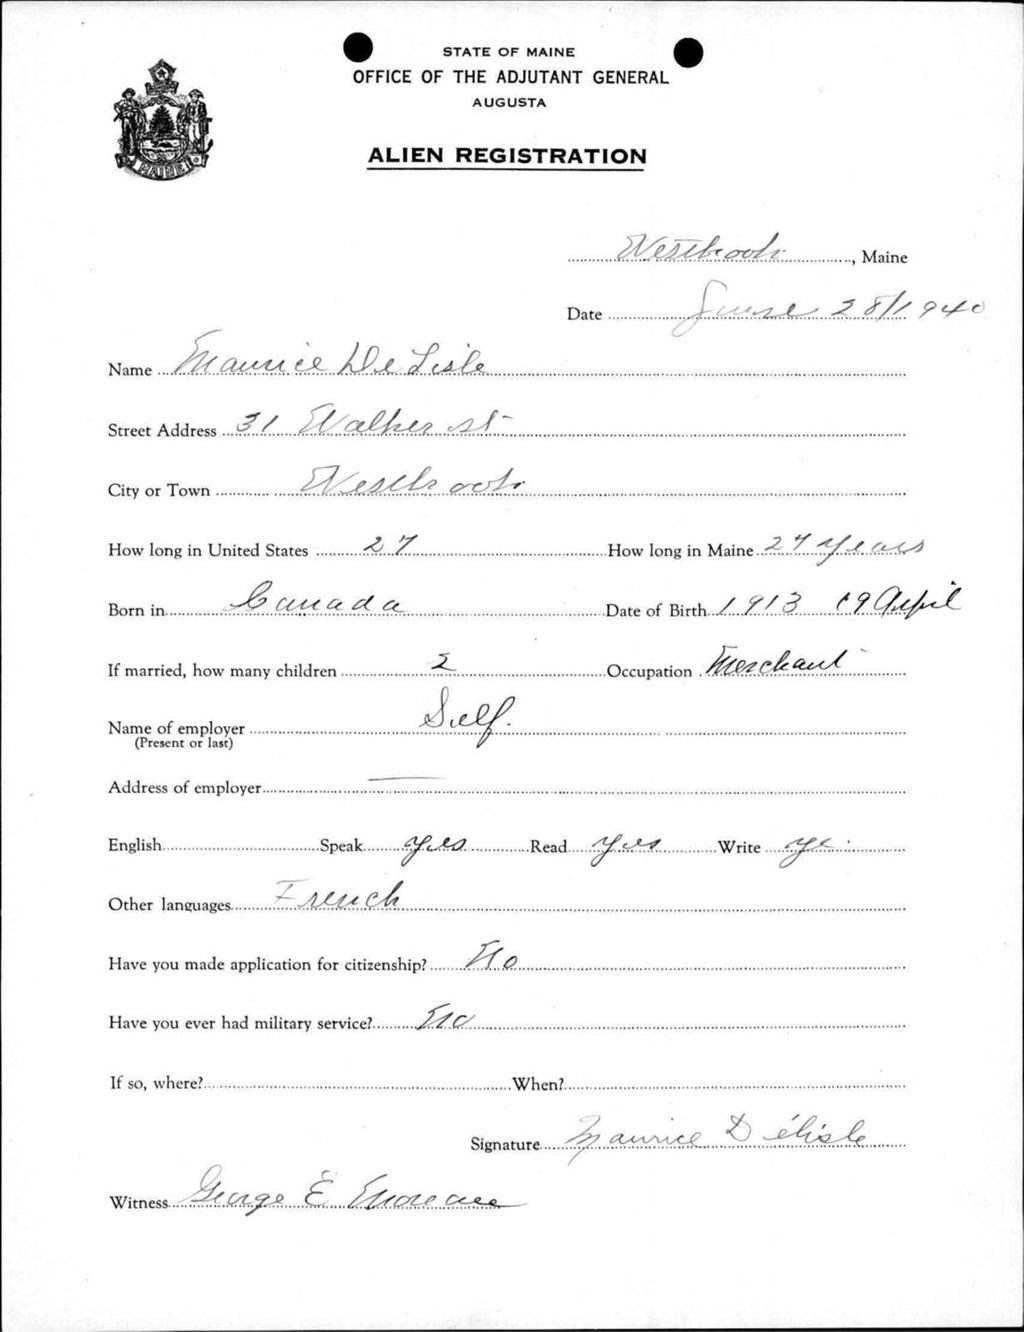 STATE OF MAINE
OFFICE OF THE ADJUTANT GENERAL
AUGUSTA
ALIEN REGISTRATION
MAINE
Westbrook, Maine
Date June 28/1940
Name Maurice De Lisle
Street Address 31 Walker st
City or Town Westbrook
How long in United States 27 How long in Maine 27 years
Born in Canada Date of Birth 1913 19 April
If married, how many children 2 Occupation Merchant
Name of employer Self.
(Present or last)
Address of employer —
English Speak yes Read yes Write ye
Other languages French
Have you made application for citizenship? No
Have you ever had military service? No
If so, where? When?
Signature Maurice Délisle
Witness George E Moreau